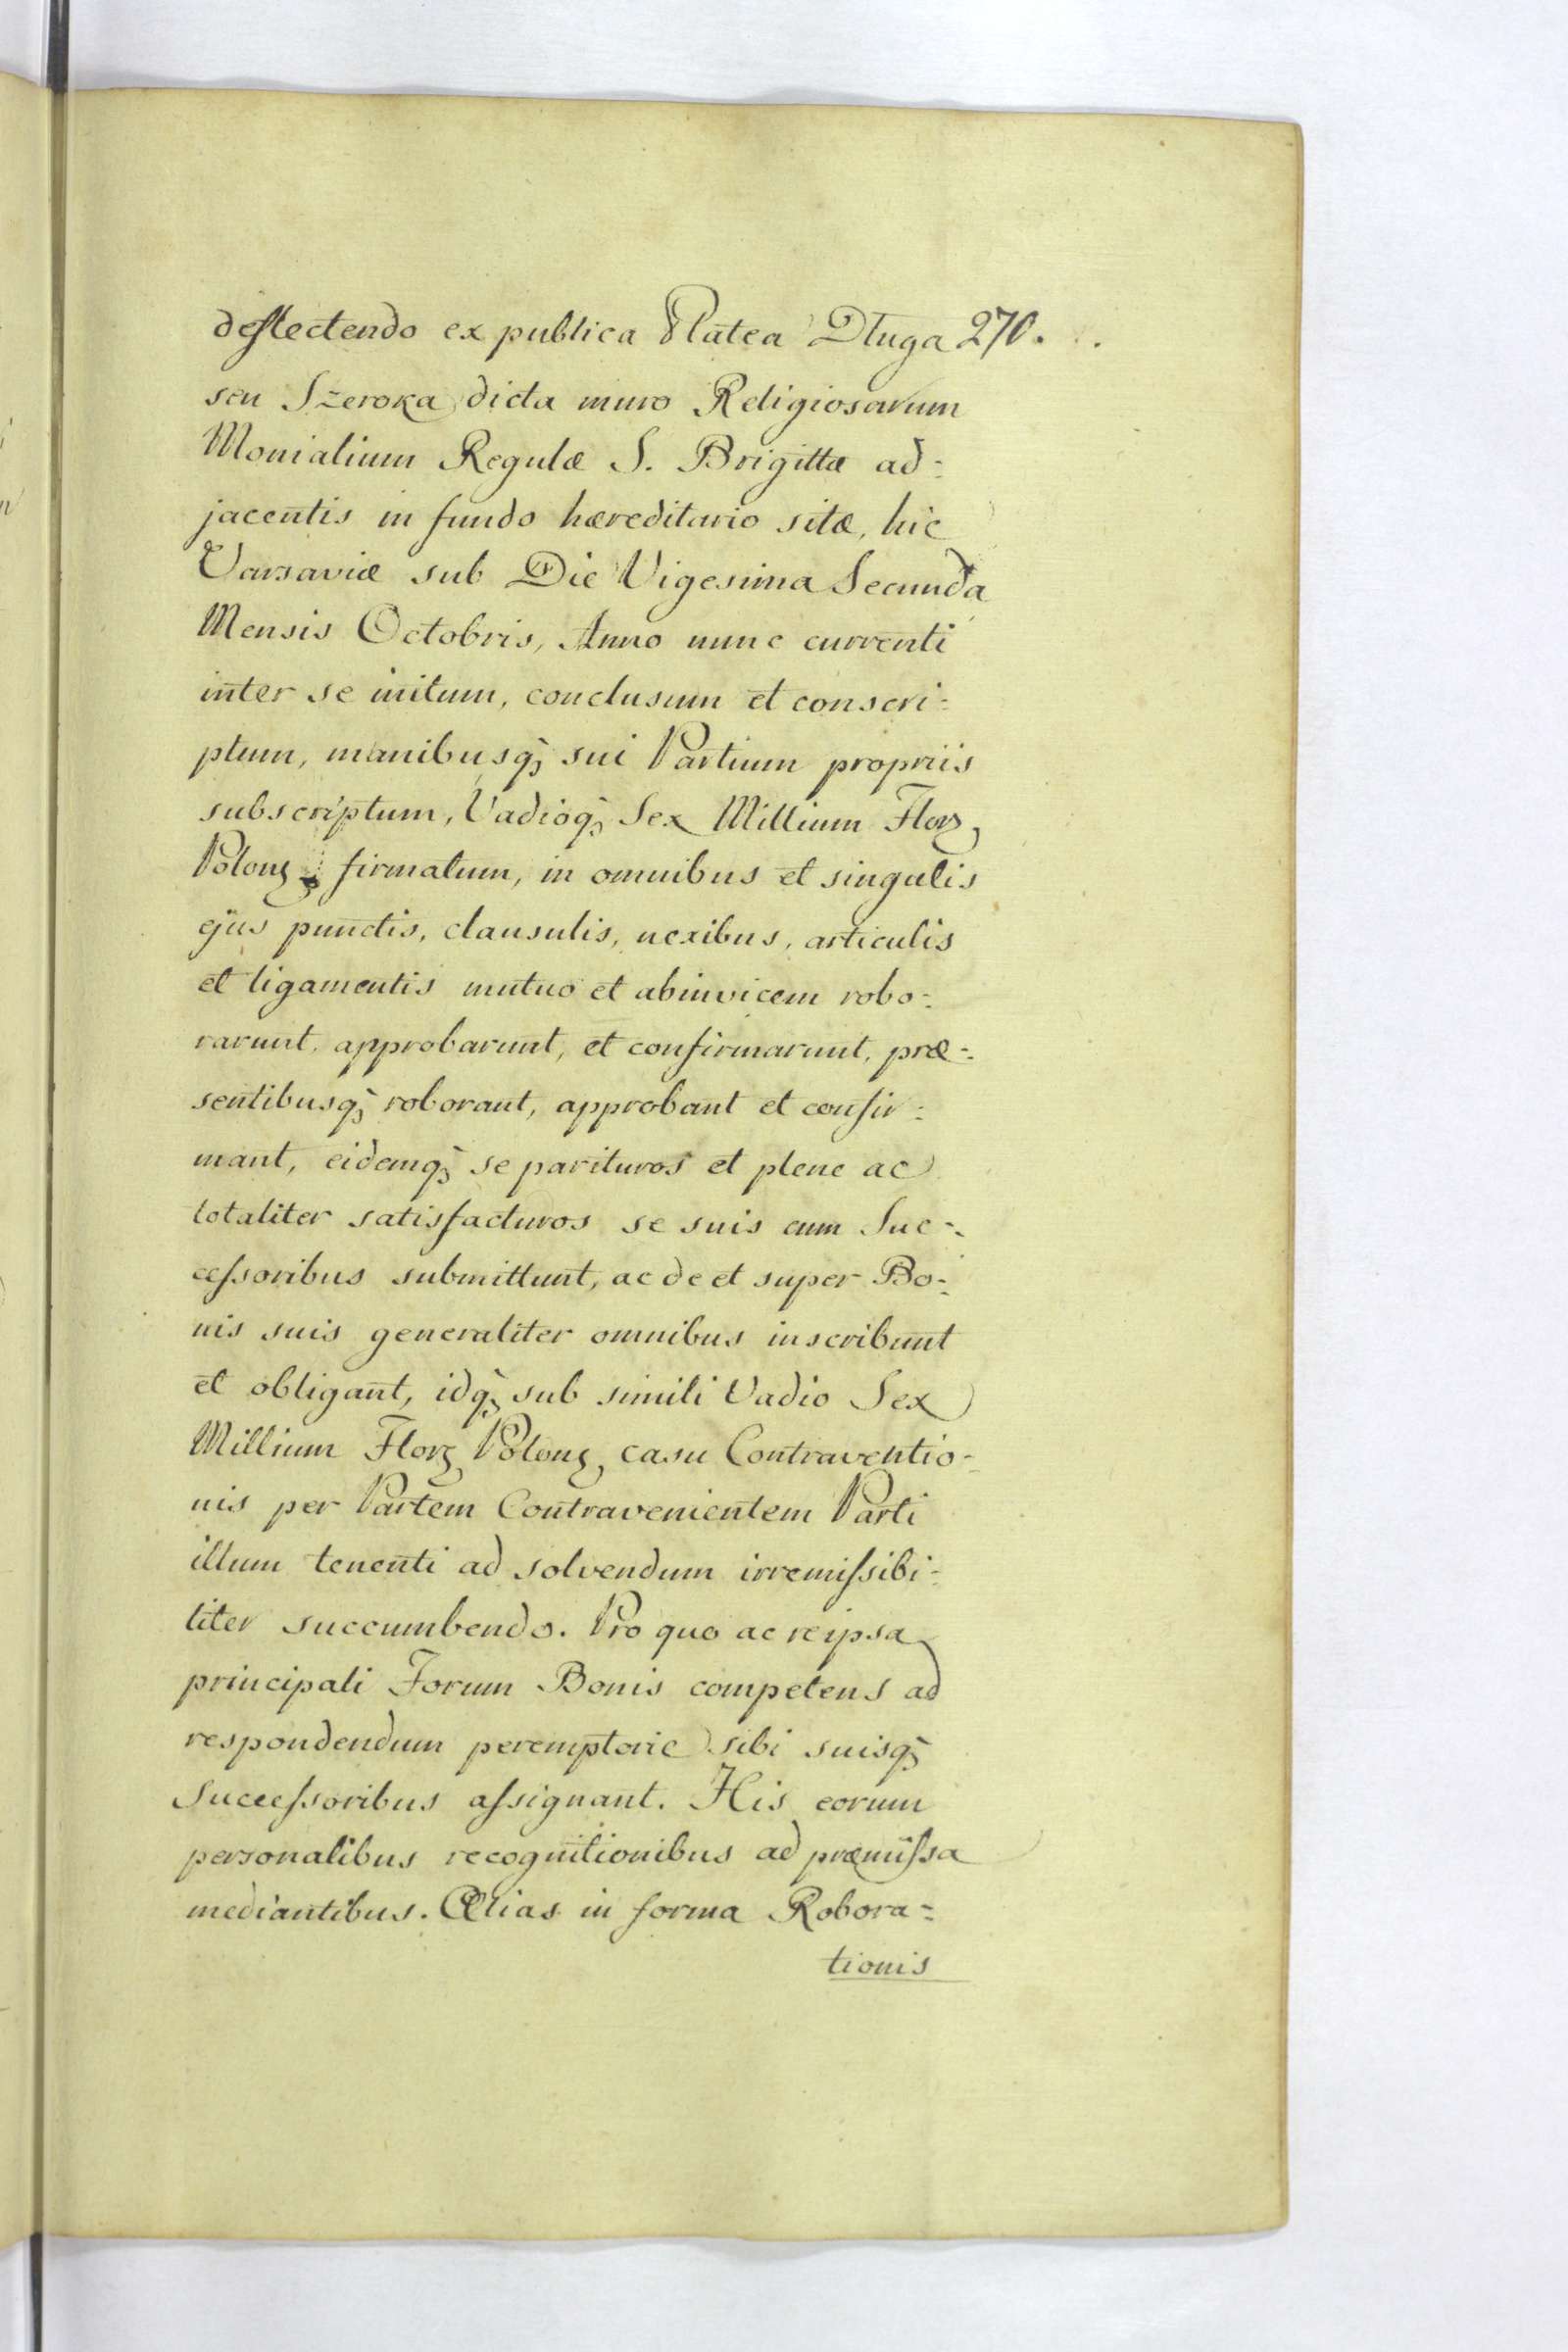 deflectendo ex publica Platea Długa 270.
seu Szeroka dicta muro Religiosarum
Monialium Regulæ S. Brigittæ ad=
jacentis in fundo hæreditario sitæ, hic
Varsaviæ sub Die Vigesima Secunda
Mensis Octobris, Anno nunc currenti
inter se initum, conclusum et conscri=
ptum, manibusq; sui Partium propriis
subscriptum, Vadioq; Sex Millium Florz
Polonz firmatum, in omnibus et singulis
ejus punctis, clausulis, nexibus, articulis
et ligamentis mutuo et abinvicem robo=
rarunt, approbarunt, et confirmarunt, præ=
sentibusq; roborant, approbant et confir=
mant, eidemq; se parituros et plene ac
totaliter satisfacturos se suis cum Suc=
cessoribus submittunt, ac de et super Bo=
nis suis generaliter omnibus inscribunt
et obligant, idq; sub simili Vadio Sex
Millium Florz Polonz, casu Contraventio=
nis per Partem Contravenientem Parti
illum tenenti ad solvendum irremissibi=
liter succumbendo. Pro quo ac reipsa
principali Forum Bonis competens ad
respondendum peremptorie sibi suisq;
Successoribus assignant. His eorum
personalibus recognitionibus ad præmissa
mediantibus. Alias in forma Robora=
tionis